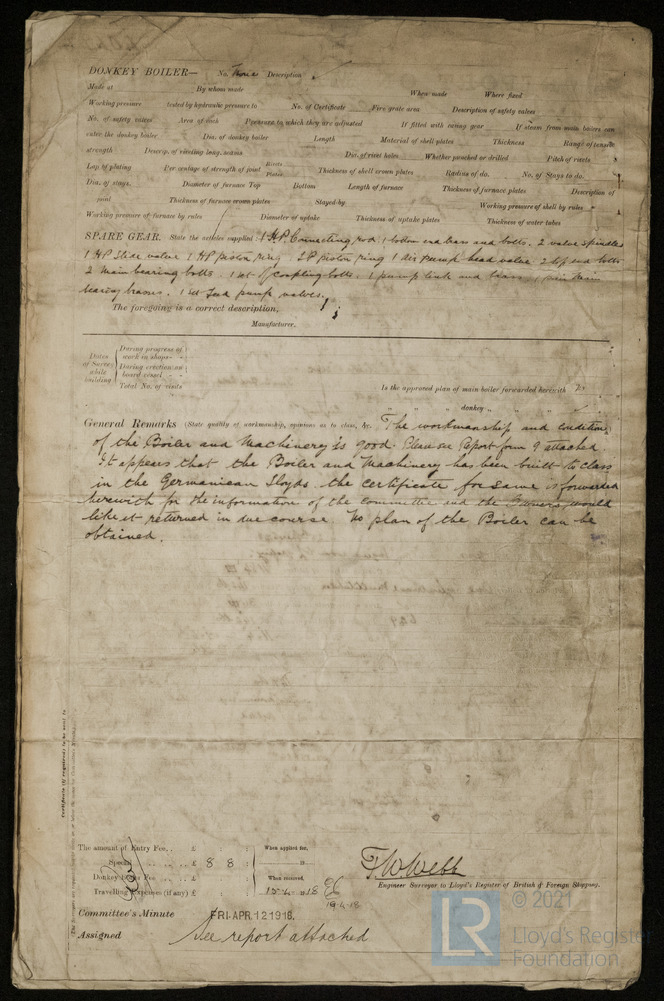 DONKEY BOILER— No. None Description
Made at By whom made When made Where fixed
Working pressure tested by hydraulic pressure to No. of Certificate Fire grate area Description of safety valves
No. of safety valves Area of each Pressure to which they are adjusted If fitted with easing gear If steam from main boilers can
enter the donkey boiler Dia. of donkey boiler Length Material of shell plates Thickness Range of tensile
strength Descrip. of riveting long. seams Dia. of rivet holes Whether punched or drilled Pitch of rivets
Lap of plating Per centage of strength of joint Rivets Plates Thickness of shell crown plates Radius of do. No. of Stays to do.
Dia. of stays. Diameter of furnace Top Bottom Length of furnace Thickness of furnace plates Description of
joint Thickness of furnace crown plates Stayed by Working pressure of shell by rules
Working pressure of furnace by rules Diameter of uptake Thickness of uptake plates Thickness of water tubes
SPARE GEAR. State the articles supplied: 1 HP Connecting rod, 1 bottom end brass and bolts. 2 valve spindles
1 HP Slide valve 1 HP piston ring, LP piston ring 1 air pump head valve, 2 top end bolts
2 Main bearing bolts. 1 set of coupling bolts. 1 pump link and brass, 1 main
bearing brasses. 1 set feed pump valves.
The foregoing is a correct description,
Manufacturer.
Dates of Survey while building
During progress of work in shops - -
During erection on board vessel - -
Total No. of visits
Is the approved plan of main boiler forwarded herewith No
" " " donkey " " "
General Remarks (State quality of workmanship, opinions as to class, &c. The workmanship and condition
of the Boiler and Machinery is good. Please see Report form 9 attached
It appears that the Boiler and Machinery has been built to class
in the Germanican Lloyds. the certificate for same is forwarded
herewith for the information of the committee and the Owners, would
like it returned in due course. No plan of the Boiler can be
obtained.
Certificate (if required) to be sent to
The amount of Entry Fee.. £ : : When applied for,
Special .. .. £ 8 8 : 19
Donkey Boiler Fee .. .. £ : : When received,
Travelling Expenses (if any) £ : : 15.4. 19 18
16.4.18
F.W. Webb
Engineer Surveyor to Lloyd's Register of British & Foreign Shipping.
Committee's Minute FRI. APR. 12 1918.
Assigned See report attached
© 2021
LR
Lloyd's Register
Foundation